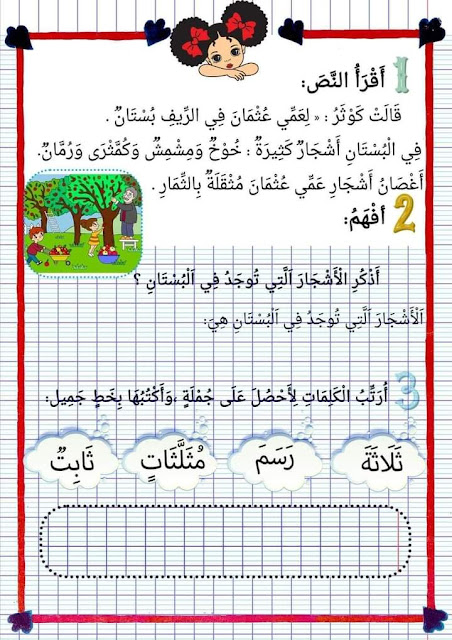 1 أَقْرَأُ النَّصَ:
قَالَتْ كَوْثَرُ : « لِعَمِّي عُثْمَانَ فِي الرِّيفِ بُسْتَانٌ .
فِي الْبُسْتَانِ أَشْجَارٌ كَثِيرَةٌ : خُوْخٌ وَمِشْمِشٌ وَكُمَّثْرَى وَرُمَّانٌ.
أَغْصَانُ أَشْجَارِ عَمِّي عُثْمَانَ مُثْقَلَةٌ بِالثِّمَارِ .
2 أفْهَمُ:
أَذْكُرِ الْأَشْجَارَ اَلَّتِي تُوجَدُ فِي اَلْبُسْتَانِ ؟
اَلْأَشْجَارَ اَلَّتِي تُوجَدُ فِي اَلْبُسْتَانِ هِيَ:
3 أُرَتِّبُ الْكَلِمَاتِ لِأَحْصُلَ عَلَى جُمْلَةٍ ،وَأَكْتُبُهَا بِخَطٍ جَمِيل:
ثَلَاثَةَ رَسَمَ مُثَلَّثَاتٍ ثَابِتٌ